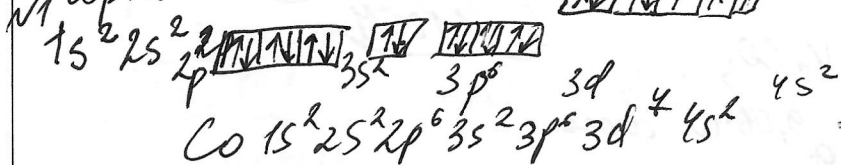 1s² 2s² 2p² ↑↓ ↑↓ ↑↓ 3s² ↑↓ 3p⁶ ↑↓ ↑↓ ↑↓ 3d 4s²
Co 1s² 2s² 2p⁶ 3s² 3p⁶ 3d⁷ 4s²